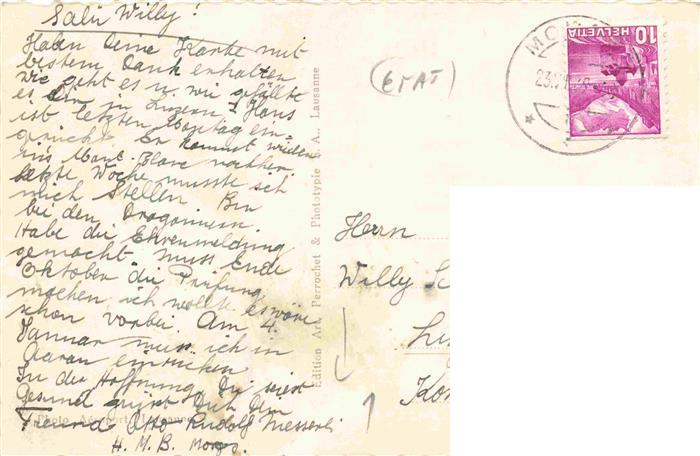 Salü Willy!
Haben Deine Karte mit
bestem Dank erhalten
wie geht es u. wir gefällts
es Dir in Luzern? Hans
ist letzten Montag ein-
gerückt. Er kommt wieder
ins Mont-Blanc nachher.
Letzte Woche musste ich
mich stellen. Bin
bei den Dragonern.
Habe die Ehrenmeldung
gemacht muss Ende
Oktober die Prüfung
machen, ich wollte es wäre
schon vorbei. Am 4.
Januar muss ich in
Aarau einrücken
In der Hoffnung, Du seiest
Gesund grüsst Dich Dein
Freund Otto-Rudolf Messerli
H. M. B. Morges.
Photo Aéroport Lausanne
Edition Art. Perrochet & Phototypie S. A., Lausanne
(EMAT)
MO
23.
HELVETIA
10
Herrn
Willy Sc
Lu
Kon